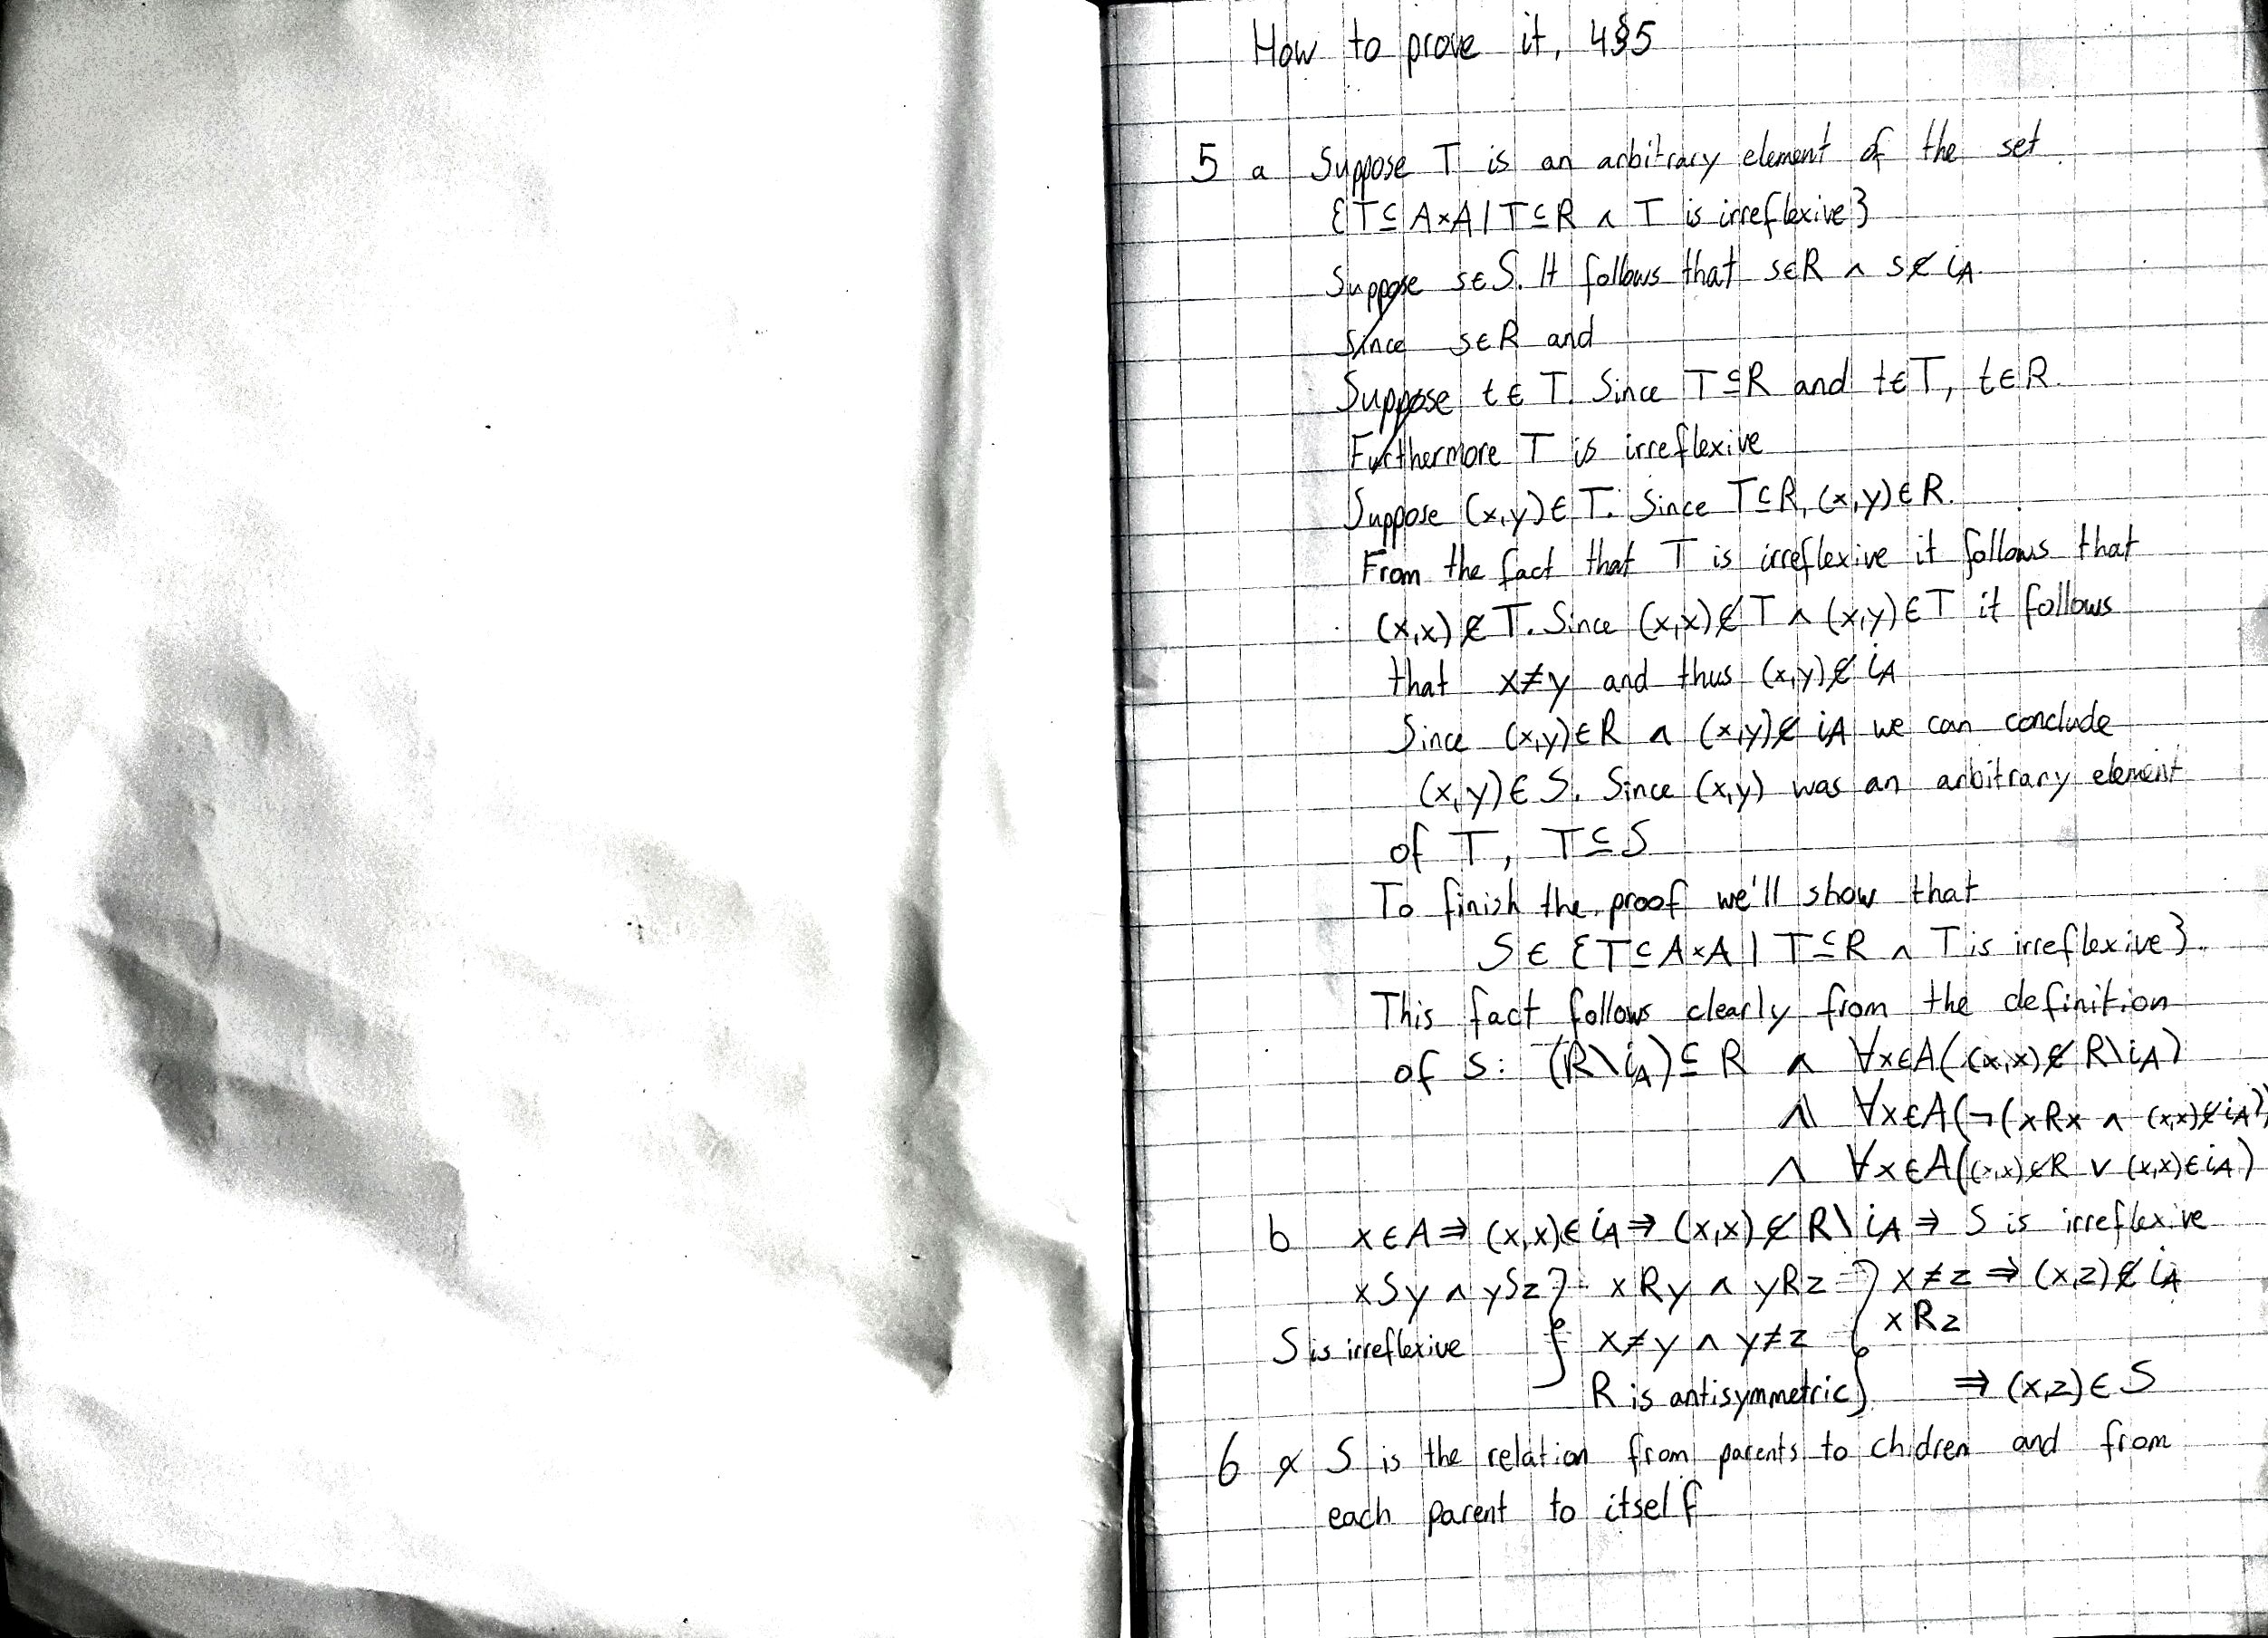 How to prove it, 4§5
5 a Suppose T is an arbitrary element of the set
{T ⊆ A×A | T ⊆ R ∧ T is irreflexive}
Suppose s∈S. It follows that s∈R ∧ s∉iA
Since s∈R and
Suppose t∈T. Since T⊆R and t∈T, t∈R.
Furthermore T is irreflexive
Suppose (x,y)∈T. Since T⊆R, (x,y)∈R.
From the fact that T is irreflexive it follows that
(x,x)∉T. Since (x,x)∉T ∧ (x,y)∈T it follows
that x≠y and thus (x,y)∉iA
Since (x,y)∈R ∧ (x,y)∉iA we can conclude
(x,y)∈S. Since (x,y) was an arbitrary element
of T, T⊆S
To finish the proof we'll show that
S∈{T⊆A×A | T⊆R ∧ T is irreflexive}.
This fact follows clearly from the definition
of S: (R\iA)⊆R ∧ ∀x∈A((x,x)∉R\iA)
∧ ∀x∈A(¬(xRx ∧ (x,x)∉iA)
∧ ∀x∈A((x,x)∉R ∨ (x,x)∈iA)
b x∈A ⇒ (x,x)∈iA ⇒ (x,x)∉R\iA ⇒ S is irreflexive
xSy ∧ ySz } xRy ∧ yRz } x≠z ⇒ (x,z)∉iA
xRz
S is irreflexive } x≠y ∧ y≠z
R is antisymmetric } ⇒ (x,z)∈S
6 a S is the relation from parents to chidren and from
each parent to itself